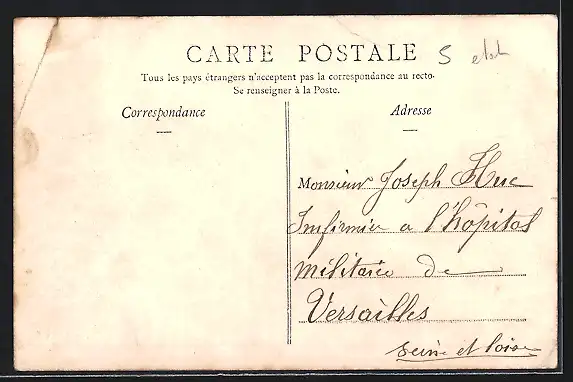 CARTE POSTALE
Tous les pays étrangers n'acceptent pas la correspondance au recto.
Se renseigner à la Poste.
Correspondance
Adresse
Monsieur Joseph Huc
Infirmier a l'hôpital
militaire de
Versailles
Seine et Loise